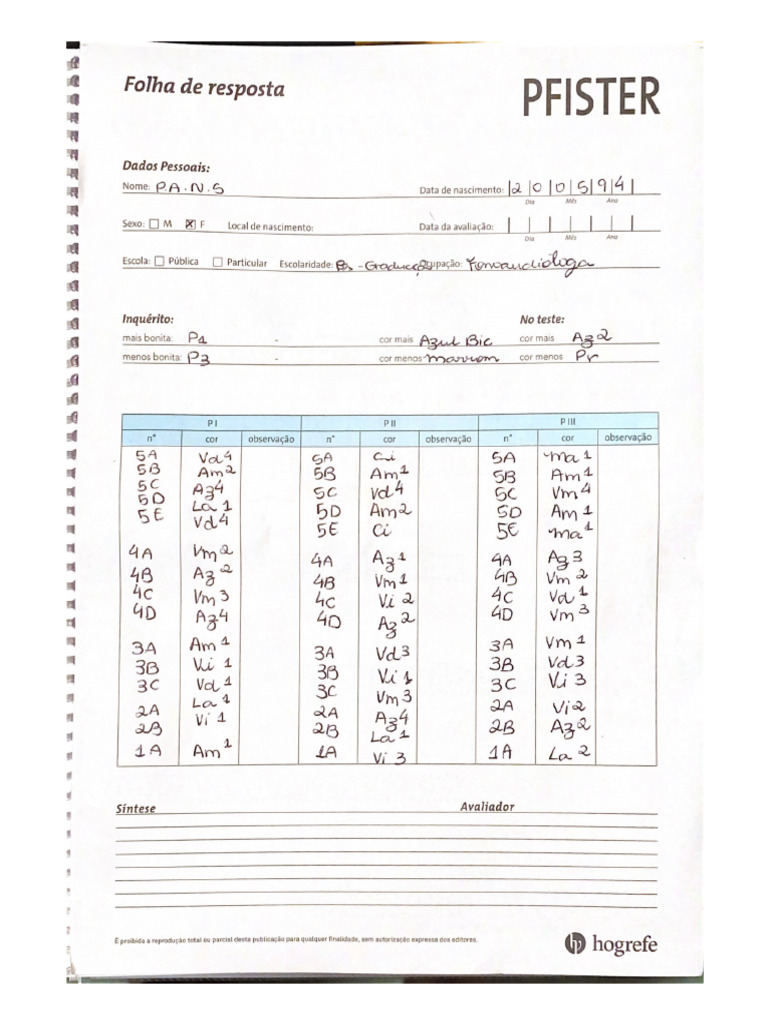 Folha de resposta PFISTER
Dados Pessoais:
Nome: P.A.N.S Data de nascimento: 20|05|94
Dia Mês Ano
Sexo: M F Local de nascimento: Data da avaliação:
Dia Mês Ano
Escola: Pública Particular Escolaridade: Pós-Graduação Ocupação: Fonoaudióloga
Inquérito: No teste:
mais bonita: P1 - cor mais Azul Bic cor mais Az2
menos bonita: P3 - cor menos marrom cor menos Pr
P I P II P III
nº cor observação nº cor observação nº cor observação
5A Vd4 5A Ci 5A Ma1
5B Am2 5B Am1 5B Am1
5C Az4 5C Vd4 5C Vm4
5D La1 5D Am2 5D Am1
5E Vd4 5E Ci 5E Ma1
4A Vm2 4A Az1 4A Az3
4B Az2 4B Vm1 4B Vm2
4C Vm3 4C Vi2 4C Vd1
4D Az4 4D Az2 4D Vm3
3A Am1 3A Vd3 3A Vm1
3B Vi1 3B Vi1 3B Vd3
3C Vd1 3C Vm3 3C Vi3
2A La1 2A Az4 2A Vi2
2B Vi1 2B La1 2B Az2
1A Am1 1A Vi3 1A La2
Síntese Avaliador
É proibida a reprodução total ou parcial desta publicação para qualquer finalidade, sem autorização expressa dos editores.
hogrefe